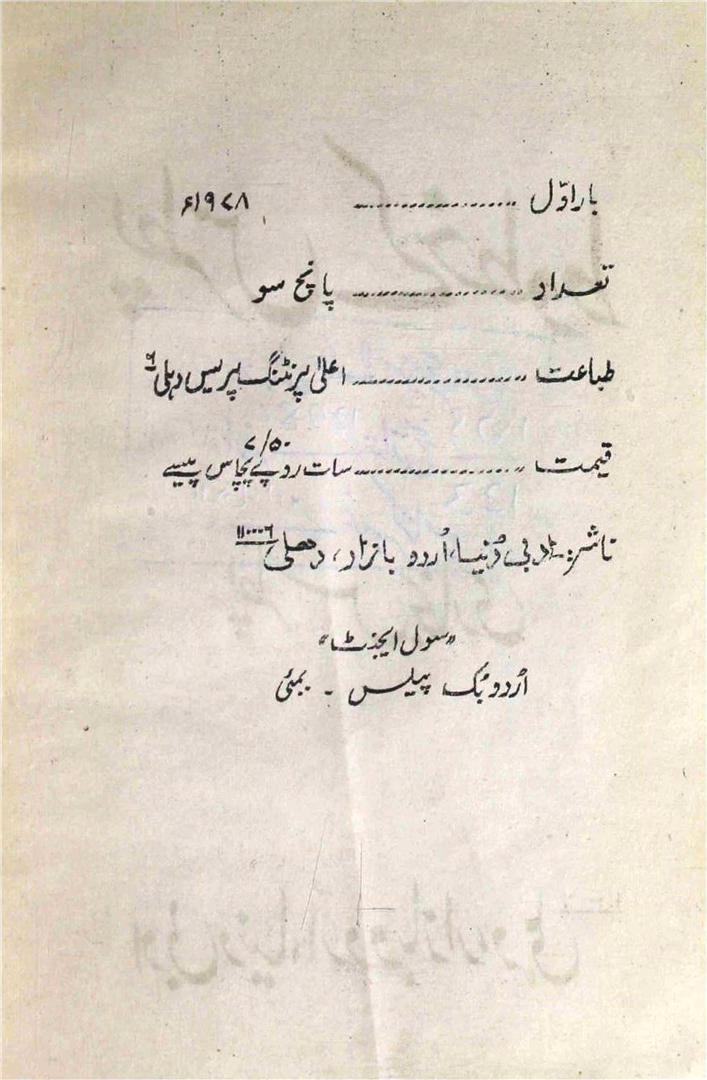 بار اوّل ................ ۱۹۷۸ء
تعداد ................ پانچ سو
طباعت ................ اعلیٰ پرنٹنگ پریس دہلی ۶
۷/۵۰
قیمت ................ سات روپے پچاس پیسے
ناشر:۔ ادبی دُنیا، اُردو بازار، دھلی ۱۱۰۰۰۶
"سول ایجنٹ"
اُردو بُک پیلس ۔ بمبئی